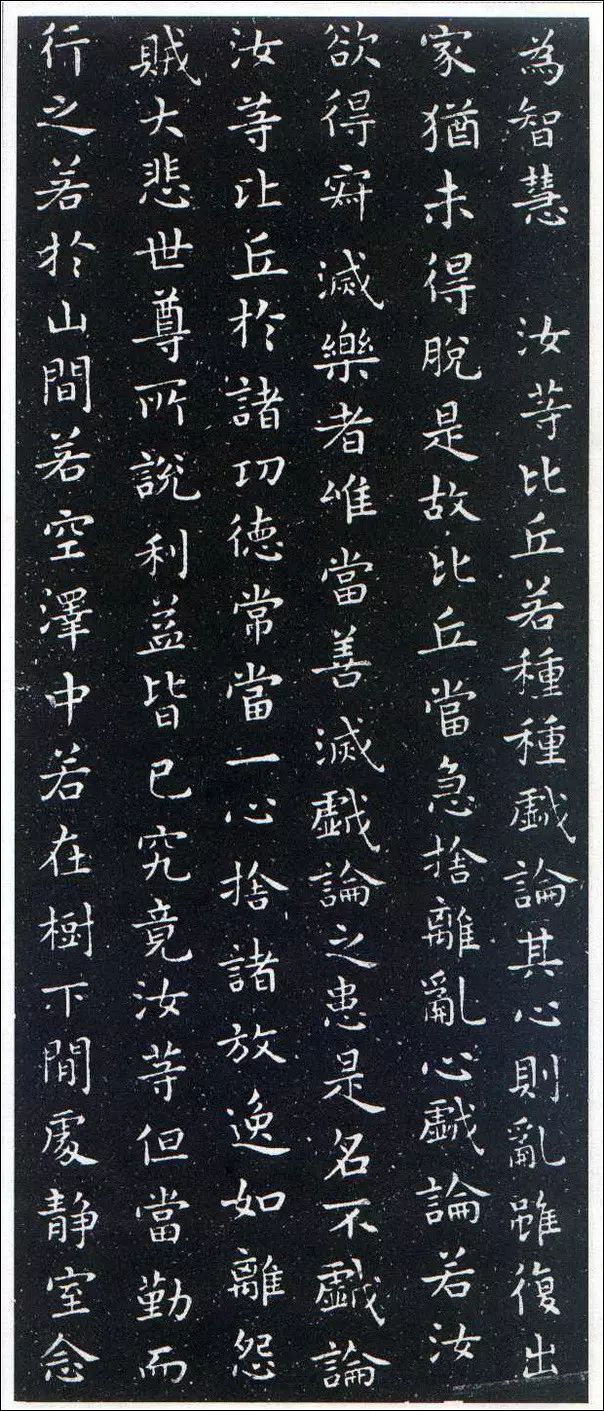 為智慧　汝等比丘若種種戯論其心則亂雖復出
家猶未得脫是故比丘當急捨離亂心戯論若汝
欲得寂滅樂者唯當善滅戯論之患是名不戯論
汝等比丘於諸功德常當一心捨諸放逸如離怨
賊大悲世尊所說利益皆已究竟汝等但當勤而
行之若於山間若空澤中若在樹下閒處静室念